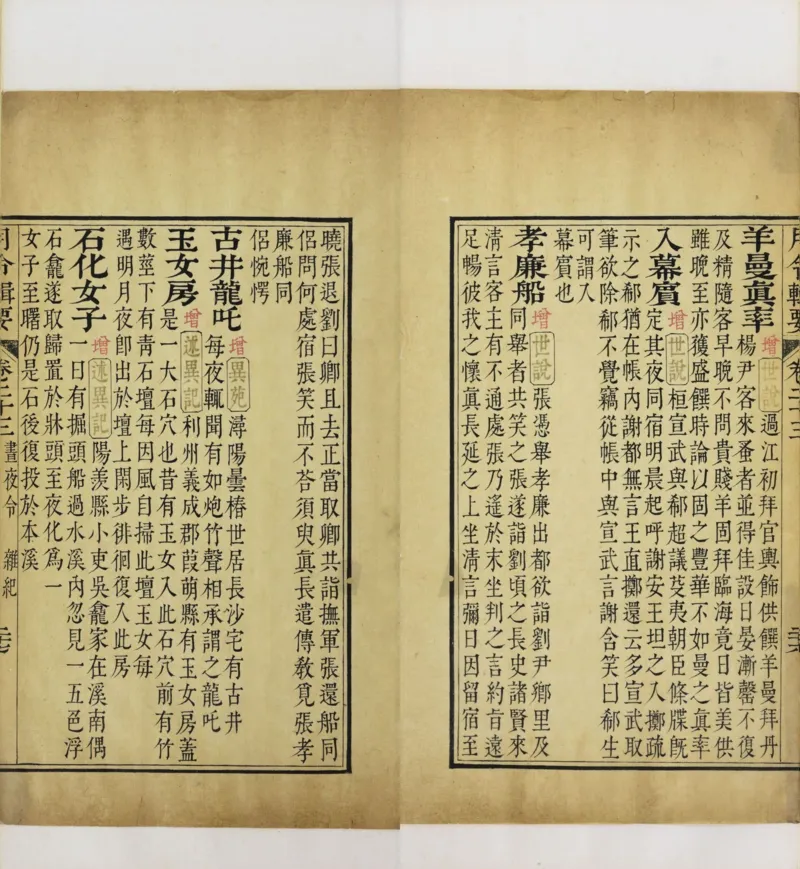 月令輯要 卷二十三
羊曼真率 增 世說 過江初拜官輿飾供饌羊曼拜丹
楊尹客來蚤者並得佳設日晏漸罄不復
及精隨客早晚不問貴賤羊固拜臨海竟日皆美供
雖晚至亦獲盛饌時論以固之豐華不如曼之真率
入幕賓 增 世說 桓宣武與郗超議芟夷朝臣條牒旣
定其夜同宿明晨起呼謝安王坦之入擲疏
示之郗猶在帳內謝都無言王直擲還云多宣武取
筆欲除郗不覺竊從帳中與宣武言謝含笑曰郗生
可謂入
幕賓也
孝廉船 增 世說 張憑舉孝廉出都欲詣劉尹鄉里及
同舉者共笑之張遂詣劉頃之長史諸賢來
清言客主有不通處張乃遙於末坐判之言約旨遠
足暢彼我之懷真長延之上坐清言彌日因留宿至
曉張退劉曰卿且去正當取卿共詣撫軍張還船同
侶問何處宿張笑而不荅須臾真長遣傳教覓張孝
廉船同
侶惋愕
古井龍吒 增 異苑 潯陽曇椿世居長沙宅有古井
每夜輒聞有如炮竹聲相承謂之龍吒
玉女房 增 述異記 利州義成郡葭萌縣有玉女房蓋
是一大石穴也昔有玉女入此石穴前有竹
數莖下有青石壇每因風自掃此壇玉女每
遇明月夜卽出於壇上閑步徘徊復入此房
石化女子 增 述異記 陽羨縣小吏吳龕家在溪南偶
一日有掘頭船過水溪內忽見一五色浮
石龕遂取歸置於牀頭至夜化爲一
女子至曙仍是石後復投於本溪
月令輯要 卷二十三 晝夜令 雜紀